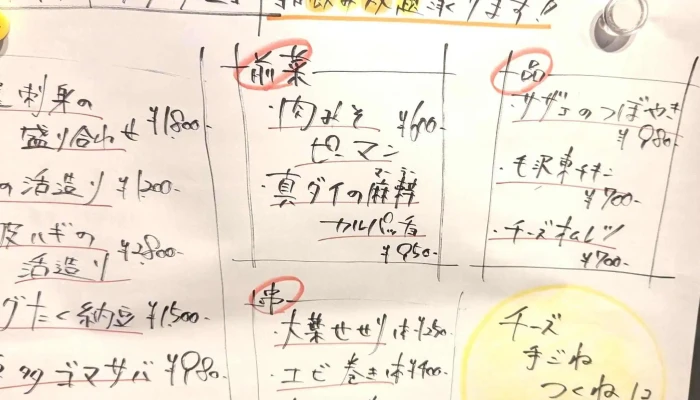 刺身の
盛り合わせ ¥1800-
の活造り ¥1200-
皮ハギの
活造り ¥2800-
グたく納豆 ¥1500-
ゴマサバ ¥980-
前菜
・肉みそ ¥600-
ピーマン
・真ダイの麻辣
マーラー
カルパッチョ
¥950-
串
・大葉せせり 1本¥250-
・エビ巻き 1本¥400-
一品
・サザエのつぼやき
¥980-
・毛沢東チキン
¥700-
・チーズオムレツ
¥700-
チーズ
手ごね
つくね